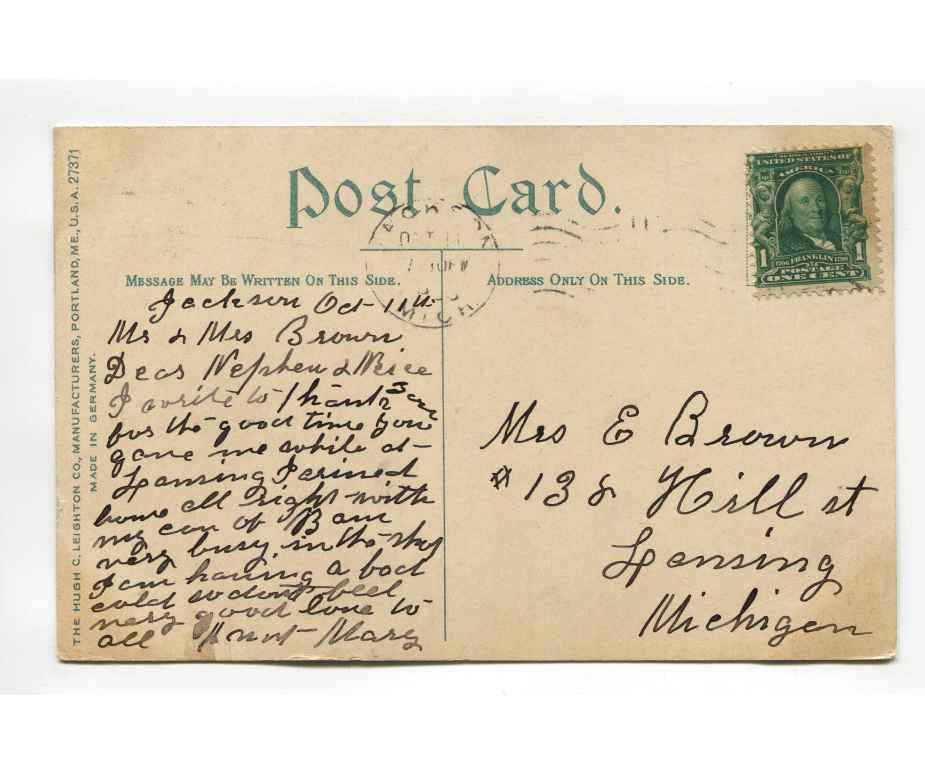 THE HUGH C. LEIGHTON CO., MANUFACTURERS, PORTLAND, ME., U.S.A. 27371
MADE IN GERMANY.
Post Card.
MESSAGE MAY BE WRITTEN ON THIS SIDE.
Jackson Oct 11th
Mr & Mrs Brown
Dear Nephew & Neice
I write to thank you
for the good time you
gave me while at
Lansing I arived
home all right with
my can of
very busy in the shop
I am having a bad
cold so dont feel
very good love to
all Aunt Mary
ADDRESS ONLY ON THIS SIDE.
Mrs E Brown
Hill st
Lansing
Michigen
JACKSON
OCT 11
MICH
UNITED STATES OF
AMERICA
1 FRANKLIN 1
POSTAGE
ONE CENT